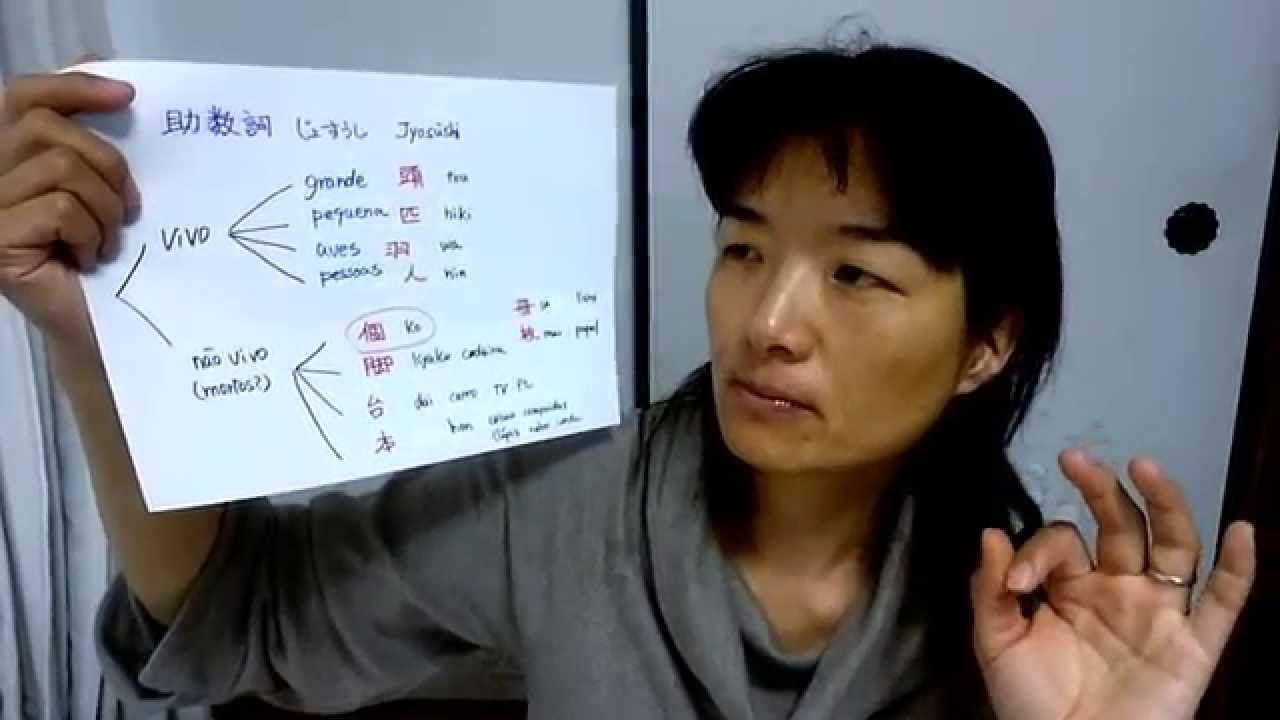 助数詞 じょすうし Jyosūshi
VIVO
grande 頭 tou
pequena 匹 hiki
aves 羽 wa
pessoas 人 nin
não vivo
(mortos?)
個 ko
脚 kyaku cadeira
台 dai carro TV PC
本 hon coisas compridas
lápis
冊 livro
枚 mai papel